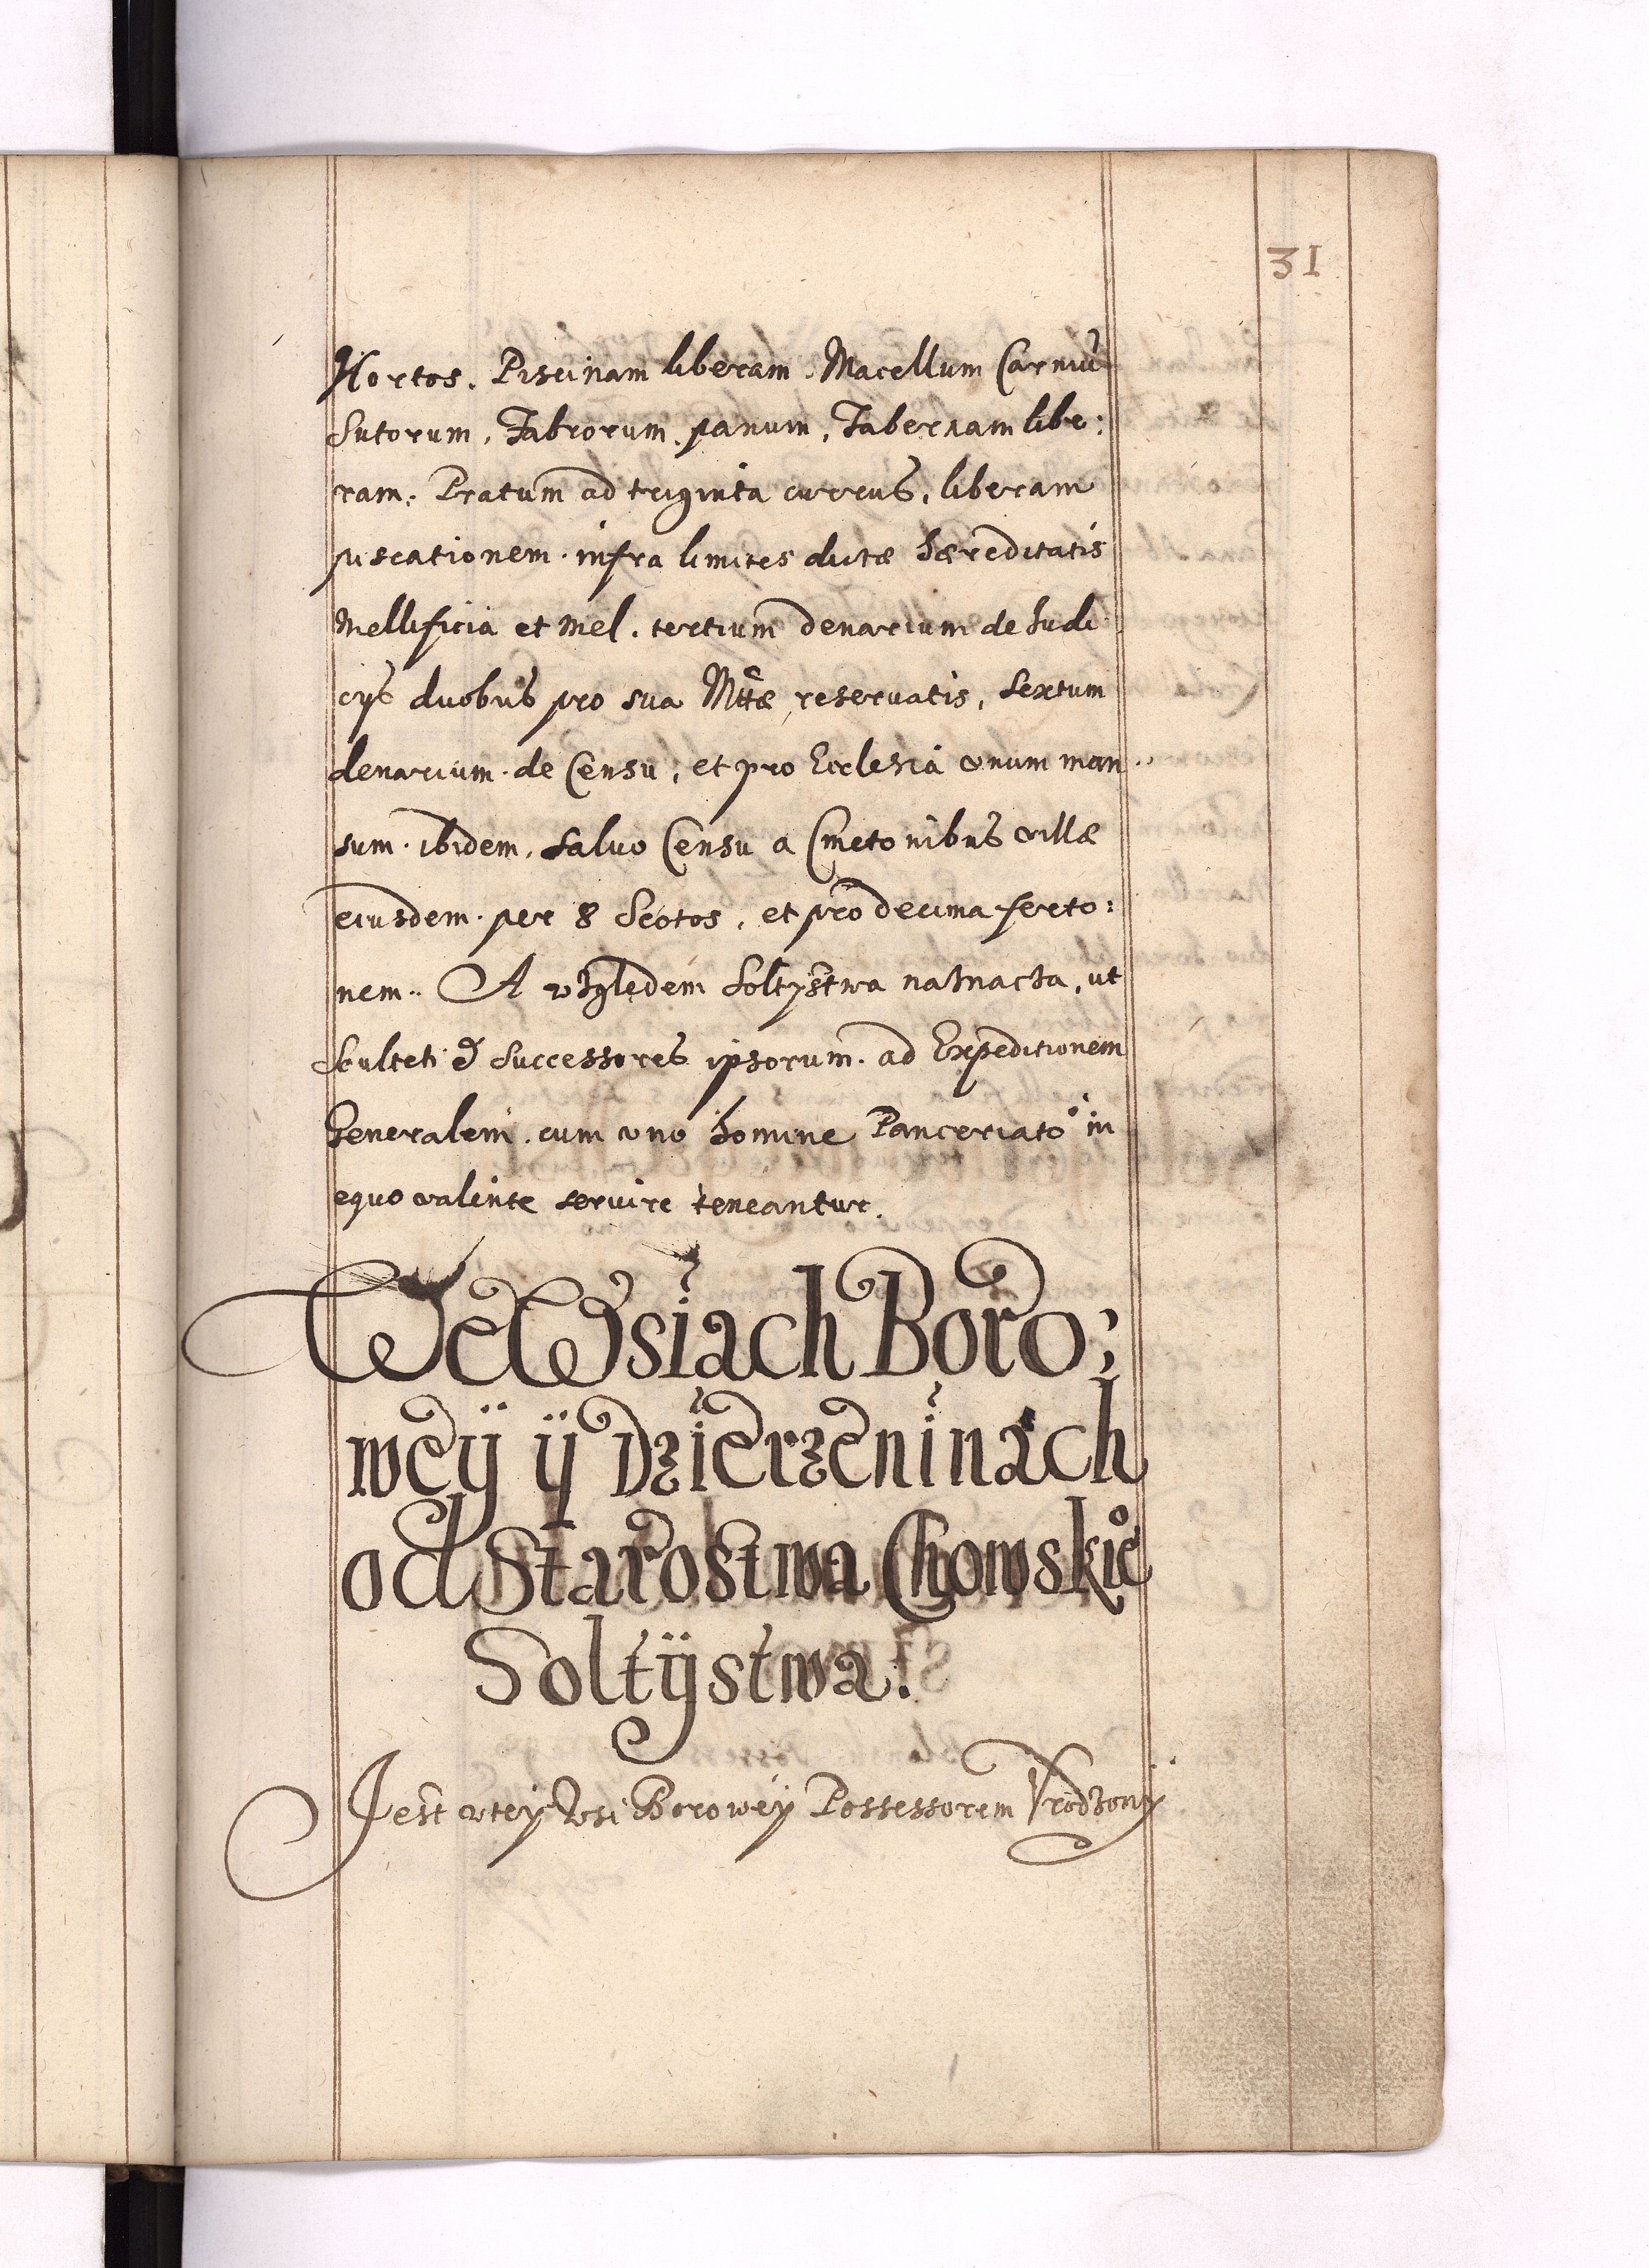 31
Hortos. Piscinam liberam. Macellum Carniũ
Sutorum, Fabrorum, panum, Tabernam libe:
ram: Pratum ad triginta currus, liberam
piscationem infra limites dictæ hæreditatis
Mellificia et Mel. tertium denarium de Judi
cys duobus pro sua Mttæ reservatis, Sextum
denarium de Censu, et pro Ecclesia vnum man
sum ibidem, Salvo Censu a Cmetonibus villæ
eiusdem per 8 Scotos, et pro decima ferto:
nem. A względem Soltystwa naznacza, ut
Sculteti & Successores ipsorum ad Expeditionem
Generalem cum vno homine Panceriato in
equo valente servire teneantur.
We Wsiach Boro:
weÿ ÿ Dzierzeninach
od Starostwa Chowskie°
Soltÿstwa.
Jest w tey Wsi Boroweÿ Possessorem Vrodzonÿ